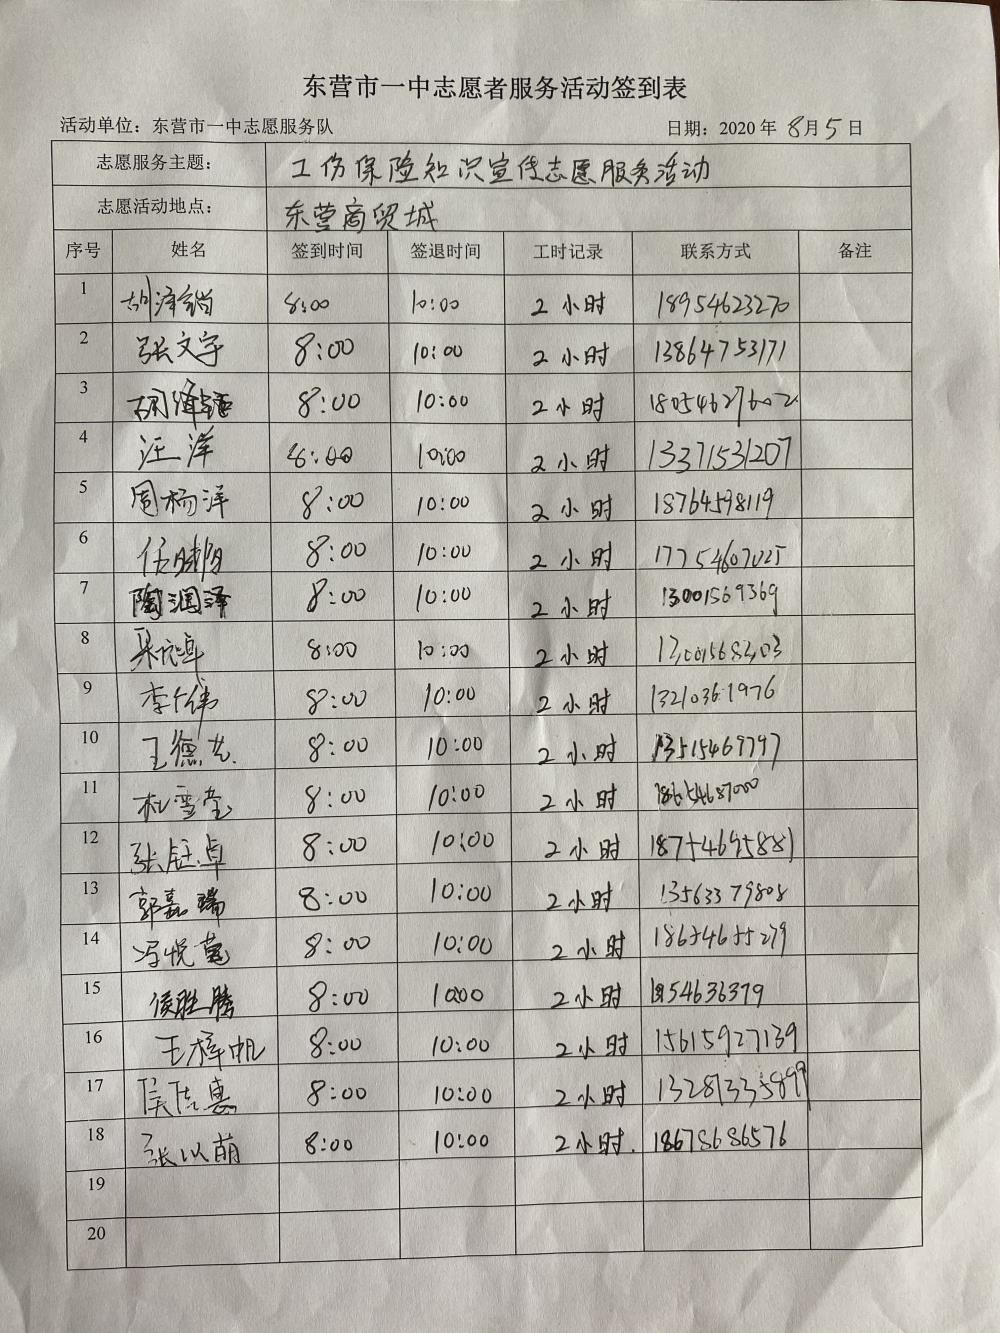 东营市一中志愿者服务活动签到表
活动单位：东营市一中志愿服务队 日期：2020 年 8月5日
志愿服务主题： 工伤保险知识宣传志愿服务活动
志愿活动地点： 东营商贸城
序号 姓名 签到时间 签退时间 工时记录 联系方式 备注
1 8:00 10:00 2小时 18954623270
2 张文宇 8:00 10:00 2小时 13864753171
3 8:00 10:00 2小时 18054627602
4 汪洋 8:00 10:00 2小时 13371531207
5 周杨洋 8:00 10:00 2小时 18764598119
6 8:00 10:00 2小时 17754607025
7 陶润泽 8:00 10:00 2小时 13001569369
8 8:00 10:00 2小时
9 李仁伟 8:00 10:00 2小时 13210361976
10 8:00 10:00 2小时 13515469797
11 杜雪莹 8:00 10:00 2小时 18654687000
12 张钰卓 8:00 10:00 2小时
13 郭嘉瑞 8:00 10:00 2小时 13563379808
14 冯悦菀 8:00 10:00 2小时 18654655279
15 侯胜腾 8:00 10:00 2小时
16 王梓帆 8:00 10:00 2小时 15615927139
17 8:00 10:00 2小时 13287335899
18 张以萌 8:00 10:00 2小时. 18678686576
19
20